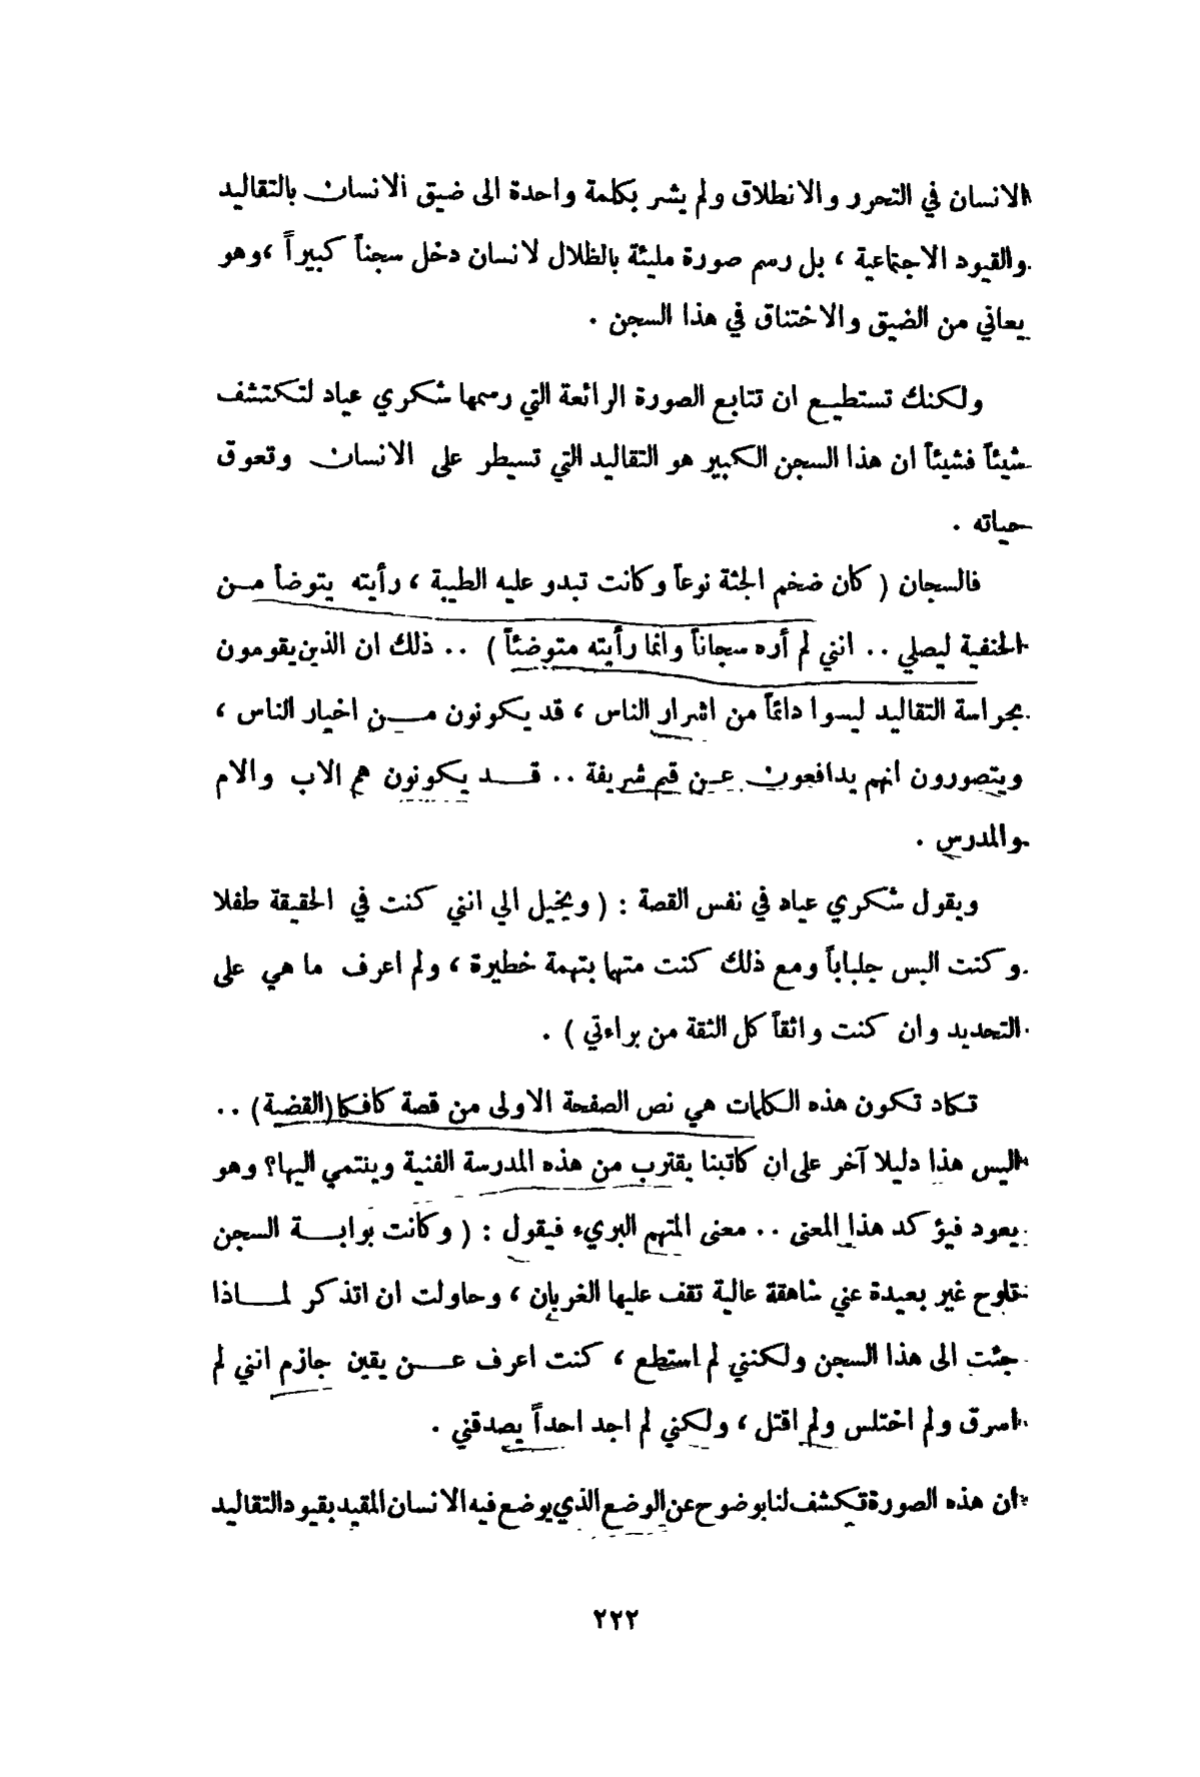 الانسان في التحرر والانطلاق ولم يشر بكلمة واحدة الى ضيق الانسان بالتقاليد
والقيود الاجتماعية ، بل رسم صورة مليئة بالظلال لانسان دخل سجناً كبيراً ، وهو
يعاني من الضيق والاختناق في هذا السجن .
ولكنك تستطيع ان تتابع الصورة الرائعة التي رسمها شكري عياد لتكتشف
شيئاً فشيئاً ان هذا السجن الكبير هو التقاليد التي تسيطر على الانسان وتعوق
حياته .
فالسجان ( كان ضخم الجثة نوعاً وكانت تبدو عليه الطيبة ، رأيته يتوضأ من
الحنفية ليصلي .. انني لم أره سجاناً وانما رأيته متوضئاً ) .. ذلك ان الذين يقومون
بحراسة التقاليد ليسوا دائماً من اشرار الناس ، قد يكونون من اخيار الناس ،
ويتصورون انهم يدافعون عن قيم شريفة .. قد يكونون هم الاب والام
والمدرس .
ويقول شكري عياد في نفس القصة : ( ويخيل الي انني كنت في الحقيقة طفلا
وكنت البس جلباباً ومع ذلك كنت متهما بتهمة خطيرة ، ولم اعرف ما هي على
التحديد وان كنت واثقاً كل الثقة من براءتي ) .
تكاد تكون هذه الكلمات هي نص الصفحة الاولى من قصة كافكا (القضية) ..
اليس هذا دليلا آخر على ان كاتبنا يقترب من هذه المدرسة الفنية وينتمي اليها؟ وهو
يعود فيؤكد هذا المعنى .. معنى المتهم البريء فيقول : ( وكانت بوابة السجن
تلوح غير بعيدة عني شاهقة عالية تقف عليها الغربان ، وحاولت ان اتذكر لماذا
جئت الى هذا السجن ولكنني لم استطع ، كنت اعرف عن يقين جازم انني لم
اسرق ولم اختلس ولم اقتل ، ولكني لم اجد احداً يصدقني .
ان هذه الصورة تكشف لنا بوضوح عن الوضع الذي يوضع فيه الانسان المقيد بقيود التقاليد
٢٢٢